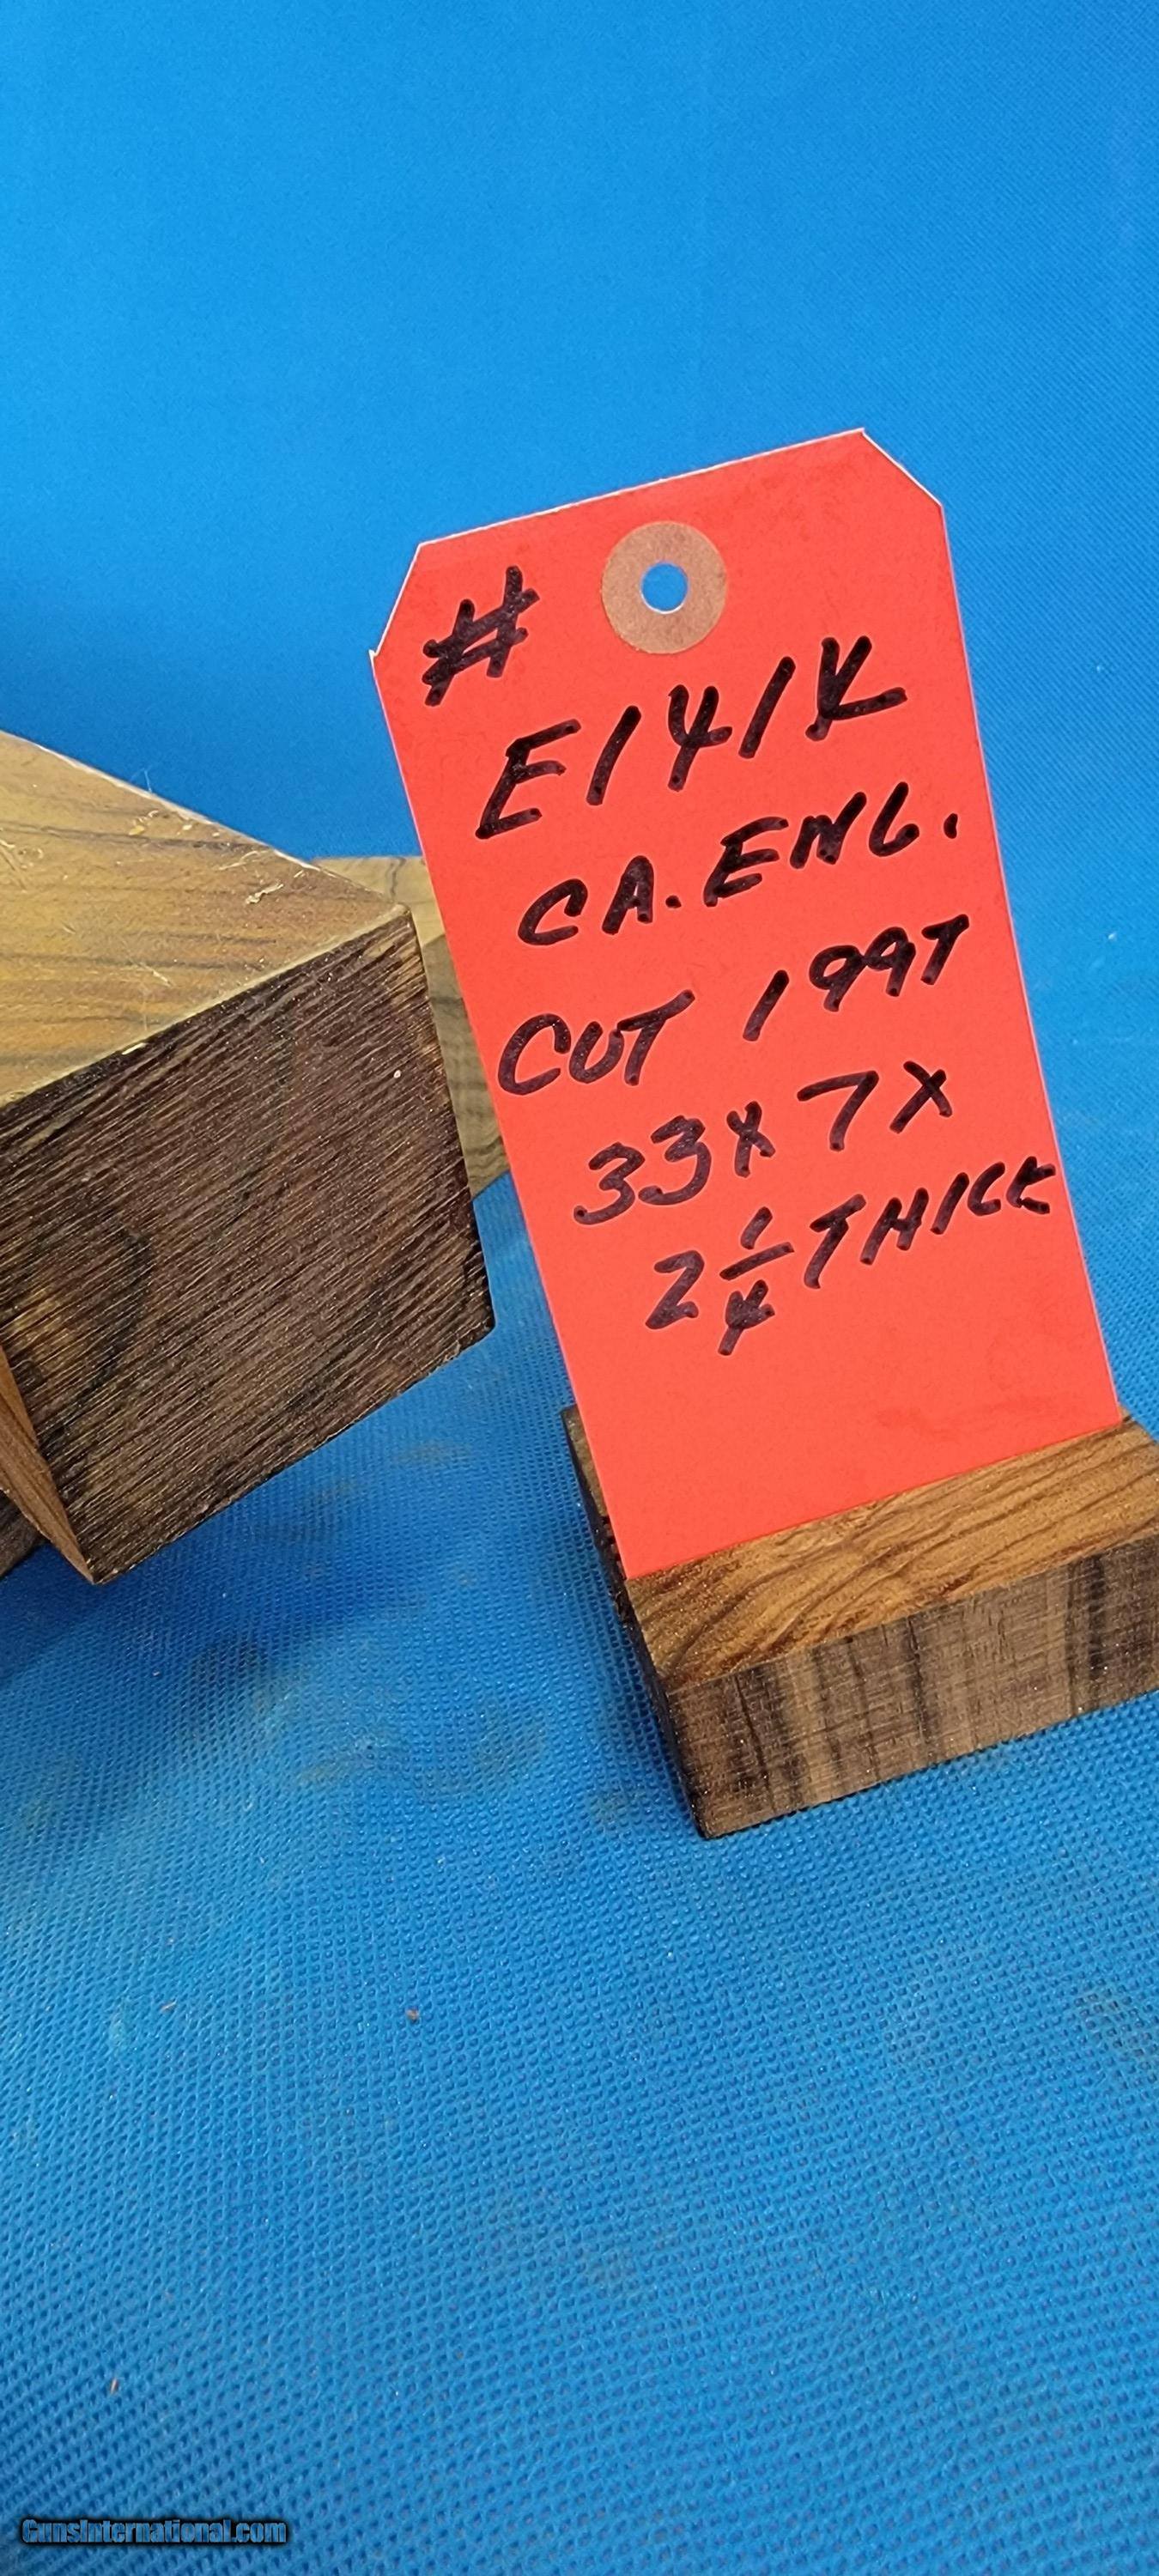 #
E141K
CA. ENG.
CUT 1997
33 X 7 X
2 1/4 THICK
GunsInternational.com